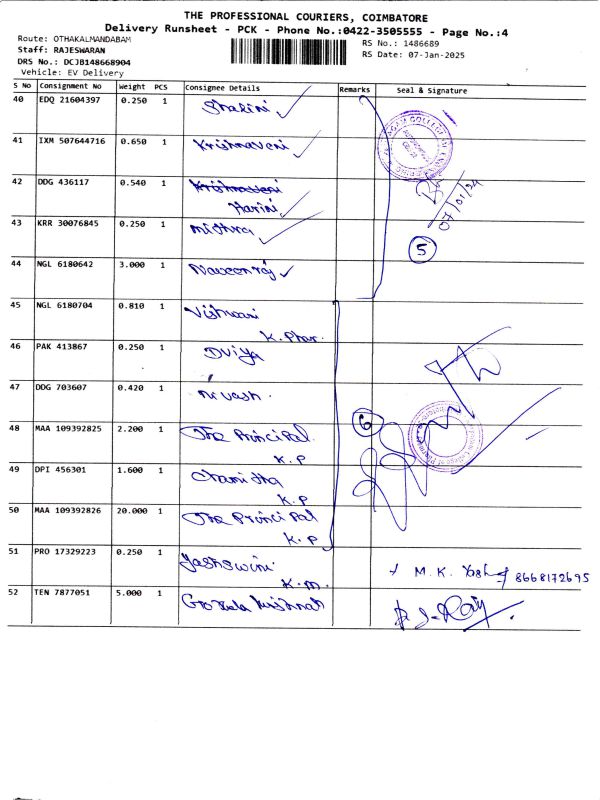 THE PROFESSIONAL COURIERS, COIMBATORE
Delivery Runsheet - PCK - Phone No.:0422-3505555 - Page No.:4
Route: OTHAKALMANDABAM
RS No.: 1486689
Staff: RAJESWARAN
RS Date: 07-Jan-2025
DRS No.: DCJB148668904
Vehicle: EV Delivery
S No Consignment No Weight PCS Consignee Details Remarks Seal & Signature
40 EDQ 21604397 0.250 1 Shalini
41 IXM 507644716 0.650 1 Krishnaveni
42 DDG 436117 0.540 1 Krishnaveni
Harini
07/01/24
43 KRR 30076845 0.250 1 Mithra
5
44 NGL 6180642 3.000 1 Naveenraj
45 NGL 6180704 0.810 1 Vishwani
K. Phar.
46 PAK 413867 0.250 1 Dviya
47 DDG 703607 0.420 1 Nivash.
6
48 MAA 109392825 2.200 1 The Principal.
K.P
49 DPI 456301 1.600 1 Chanitha
K.P
50 MAA 109392826 20.000 1 The Principal
K.P
51 PRO 17329223 0.250 1 Yashswini
K.M.
M.K. Yash 8668172695
52 TEN 7877051 5.000 1 Gokula Krishnah